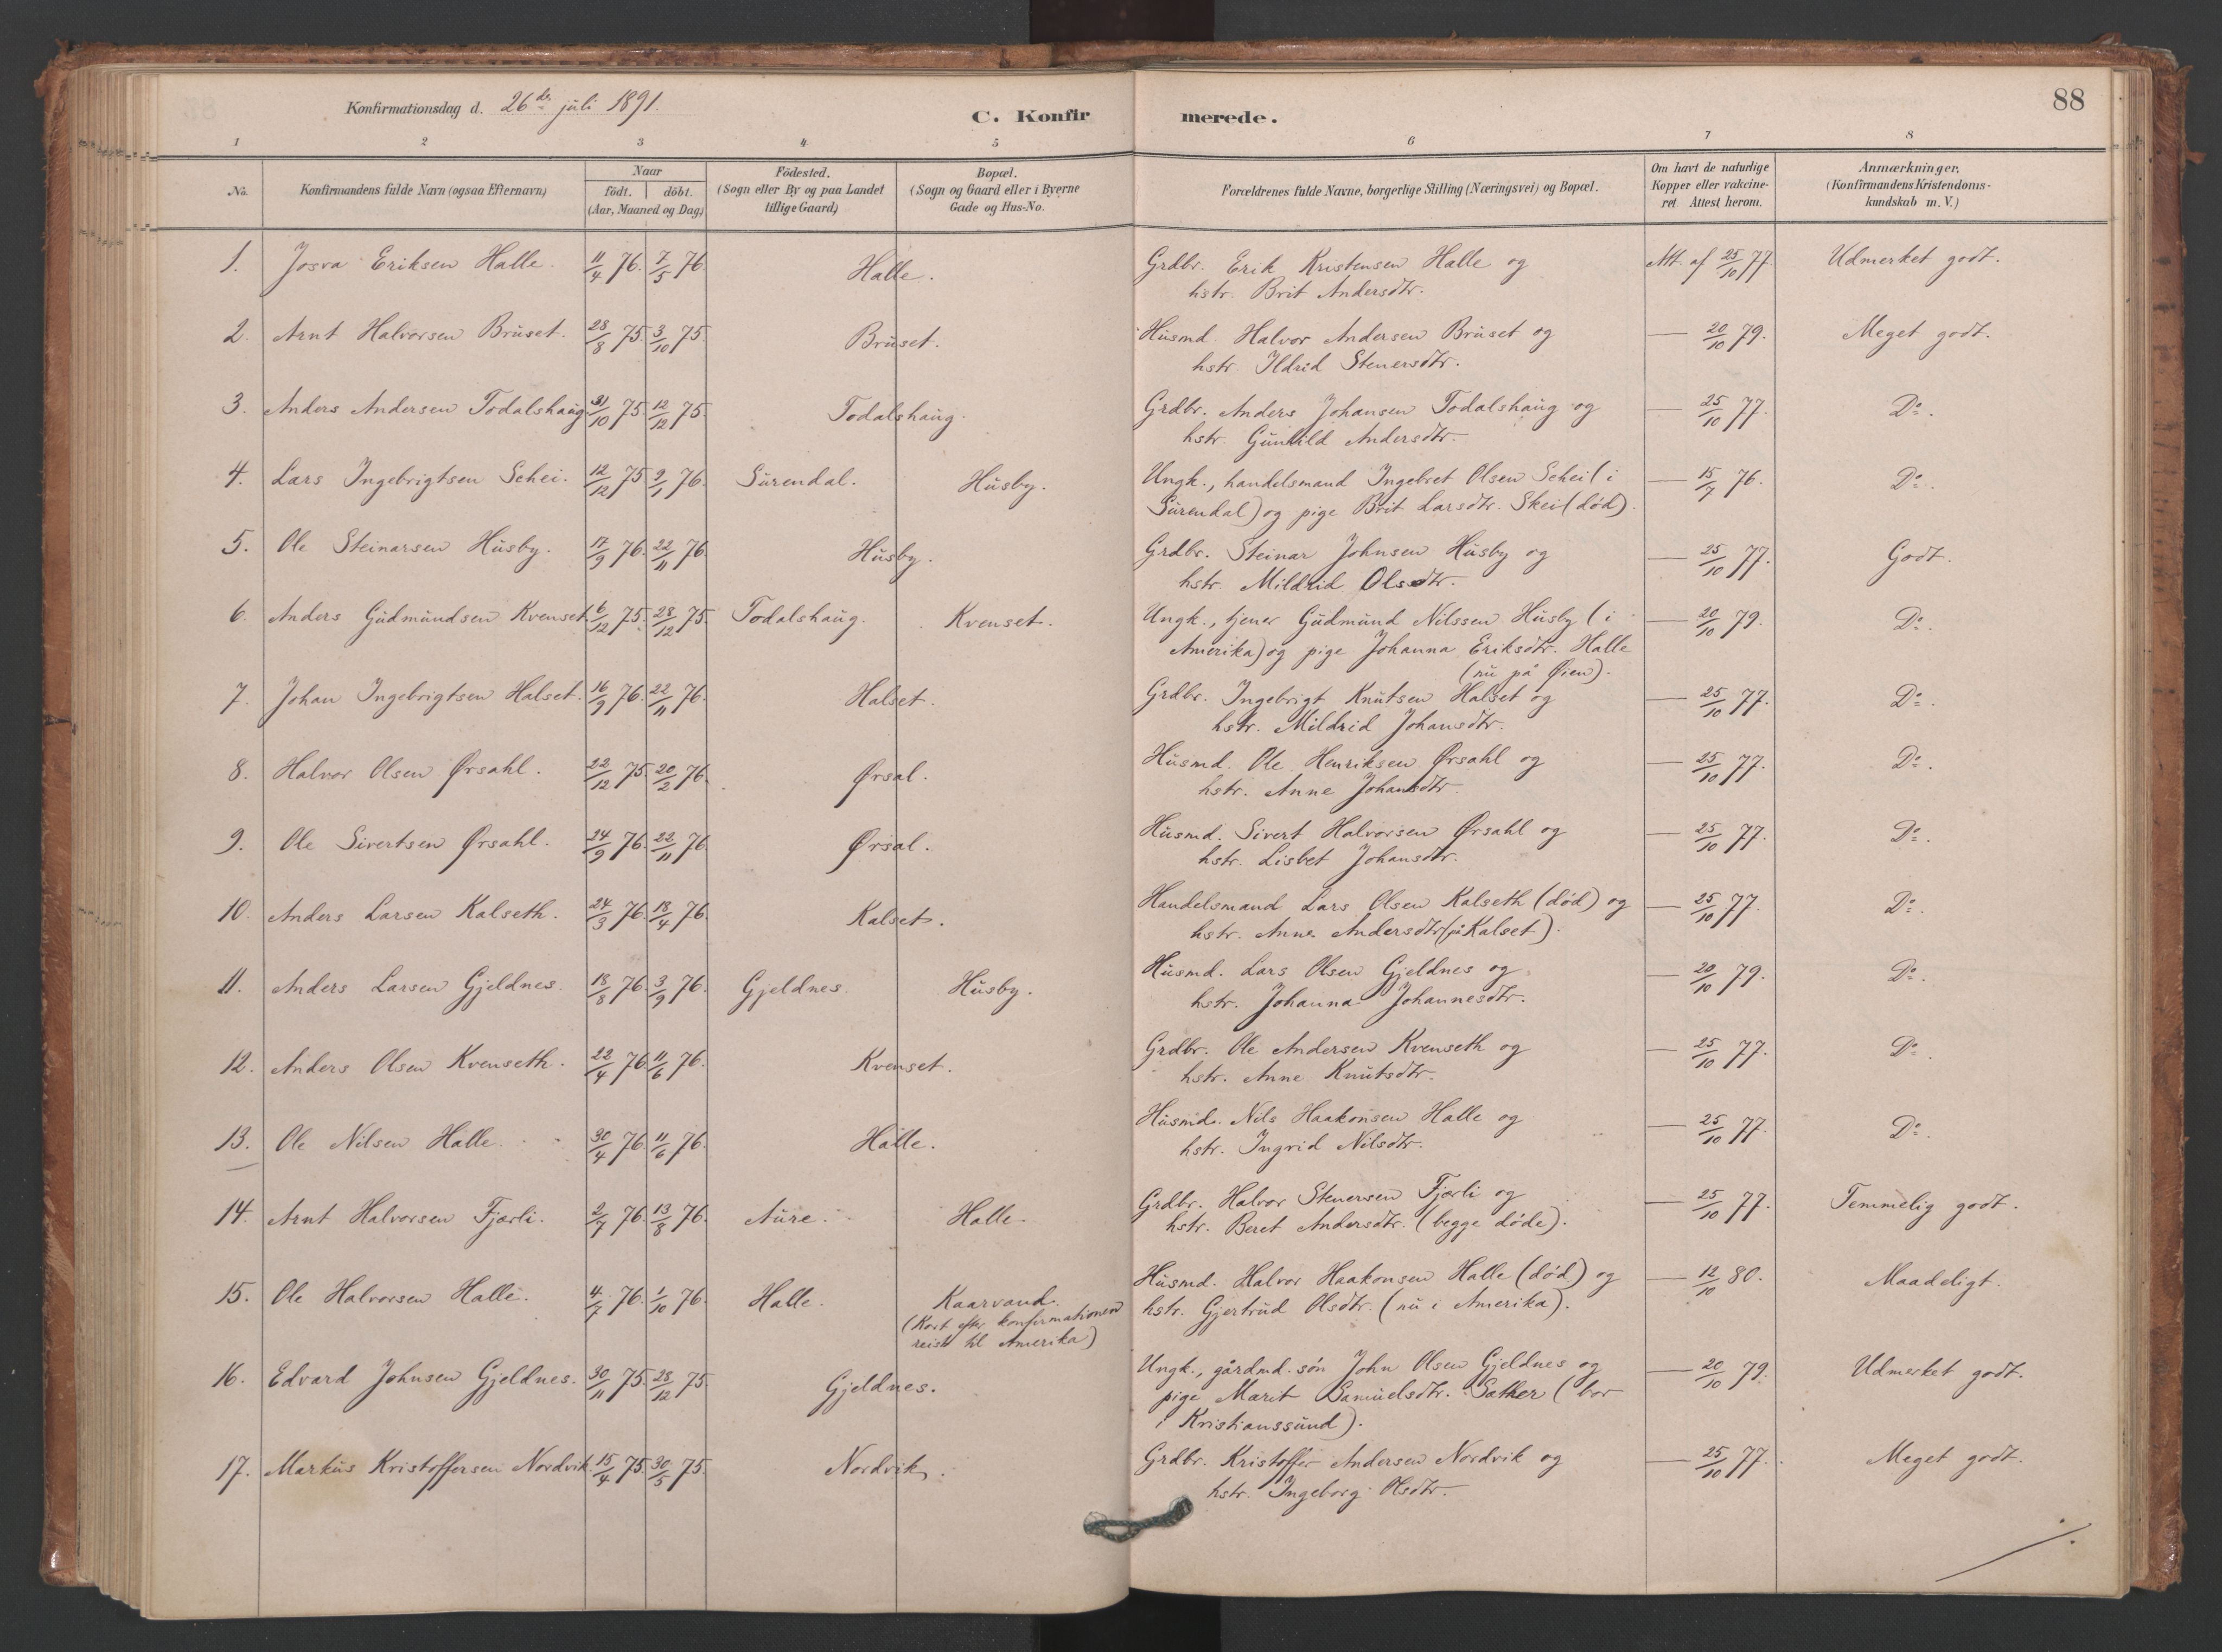 88
Konfirmationsdag d. 26de juli 1891.
C. Konfirmerede.
1 2 3 4 5 6 7 8
No. Konfirmandens fulde Navn (ogsaa Efternavn) Naar födt. döbt. (Aar, Maaned og Dag.) Födested. (Sogn eller By og paa Landet tillige Gaard) Bopæl. (Sogn og Gaard eller i Byerne Gade og Hus-No. Forældrenes fulde Navne, borgerlige Stilling (Næringsvei) og Bopæl. Om havt de naturlige Kopper eller vakcineret Attest herom. Anmærkninger. (Konfirmandens Kristendomskundskab m. V.)
1. Josva Eriksen Halle. 11/4 76. 7/5 76. Halle. Grdbr. Erik Kristensen Halle og Att. af 25/10 77. Udmerket godt.
hstr. Brit Andersdtr.
2. Arnt Halvorsen Bruset. 28/8 75. 3/10 75. Bruset. Husmd. Halvor Andersen Bruset og — 20/10 79. Meget godt.
hstr. Ildrid Stenersdtr.
3. Anders Andersen Todalshaug 31/10 75. 12/12 75. Todalshaug. Grdbr. Anders Johansen Todalshaug og — 25/10 77. Do.
hstr. Gunhild Andersdtr.
4. Lars Ingebrigtsen Schei. 12/12 75. 9/1 76. Surendal. Husby. Ungk., handelsmand Ingebret Olsen Schei (i — 15/7 76. Do.
Surendal) og pige Brit Larsdtr. Skei (död).
5. Ole Steinarsen Husby. 17/9 76. 22/11 76. Husby. Grdbr. Steinar Johnsen Husby og — 25/10 77. Godt.
hstr. Mildrid Olsdtr.
6. Anders Gudmundsen Kvenset. 6/12 75. 28/12 75. Todalshaug. Kvenset. Ungk., tjener Gudmund Nilssen Husby (i — 20/10 79. Do.
Amerika) og pige Johanna Eriksdtr. Halle
(nu på Øien).
7. Johan Ingebrigtsen Halset. 16/9 76. 22/11 76. Halset. Grdbr. Ingebrigt Knutsen Halset og — 25/10 77. Do.
hstr. Mildrid Johansdtr.
8. Halvor Olsen Ørsahl. 22/12 75. 20/2 76. Ørsal. Husmd. Ole Henriksen Ørsahl og — 25/10 77. Do.
hstr. Anne Johansdtr.
9. Ole Sivertsen Ørsahl. 24/9 76. 22/11 76. Ørsal. Husmd. Sivert Halvorsen Ørsahl og — 25/10 77. Do.
hstr. Lisbet Johansdtr.
10. Anders Larsen Kalseth. 24/3 76. 18/4 76. Kalset. Handelsmand Lars Olsen Kalseth (död) og — 25/10 77. Do.
hstr. Anne Andersdtr (på Kalset).
11. Anders Larsen Gjeldnes. 18/8 76. 3/9 76. Gjeldnes. Husby. Husmd. Lars Olsen Gjeldnes og — 20/10 79. Do.
hstr. Johanna Johannesdtr.
12. Anders Olsen Kvenseth. 22/4 76. 11/6 76. Kvenset. Grdbr. Ole Andersen Kvenseth og — 25/10 77. Do.
hstr. Anne Knutsdtr.
13. Ole Nilsen Halle. 30/4 76. 11/6 76. Halle. Husmd. Nils Haakonsen Halle og — 25/10 77. Do.
hstr. Ingrid Nilsdtr.
14. Arnt Halvorsen Fjærli. 2/7 76. 13/8 76. Aure. Halle. Grdbr. Halvor Stenersen Fjærli og — 25/10 77. Temmelig godt.
hstr. Beret Andersdtr. (begge döde).
15. Ole Halvorsen Halle. 4/7 76. 1/10 76. Halle. Kaarvand. Husmd. Halvor Haakonsen Halle (död) og — 12/10 80. Maadeligt.
(Kort efter konfirmationen hstr. Gjertrud Olsdtr. (nu i Amerika).
reist til Amerika)
16. Edvard Johnsen Gjeldnes. 30/11 75. 28/12 75. Gjeldnes. Ungk., gårdmd. sön John Olsen Gjeldnes og — 20/10 79. Udmerket godt.
pige Marit Samuelsdtr. Sæther (bor
i Kristianssund).
17. Markus Kristoffersen Nordvik. 15/4 75. 30/5 75. Nordvik. Grdbr. Kristoffer Andersen Nordvik og — 25/10 77. Meget godt.
hstr. Ingeborg Olsdtr.